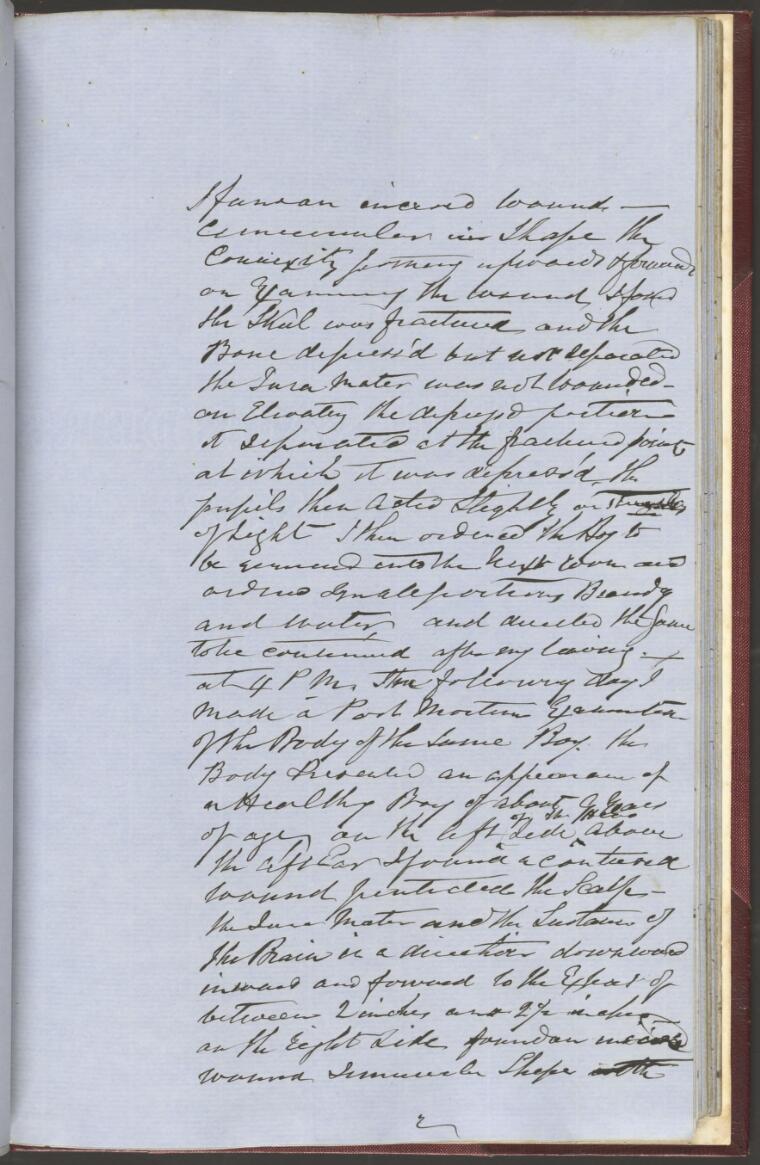 I found an incised wound —
Cemicircular in Shape the
Convexity forming upwards & forwards
on Examining the wound I found
the Skul was fractured and the
Bone depress'd but not seperated
the Dura Mater was not wounded —
on Elevating the depressd portion
it Seperated at the fractured point
at which it was depress'd, the
pupils then acted Slightly on
of Light I then ordered the Boy to
be removed into the Next room and
ordered Small portions Brandy
and water, and directed the Same
to be continued after my leaving. —
at 4 P M. The following day I
Made a Post Mortem Examination
of the Body of the Same Boy. the
Body Presented an appearance of
a Healthy Boy of about Years
of the Head
of age, on the left Side above
the left Ear I found a contused
wound penetrated the Scalp —
the Dura Mater and the Sustance of
the Brain in a direction downward
inward and forward to the Extent of
between 2 inches and 2½ inches
on the Right Side found an incised
wound Semicircular Shape
2